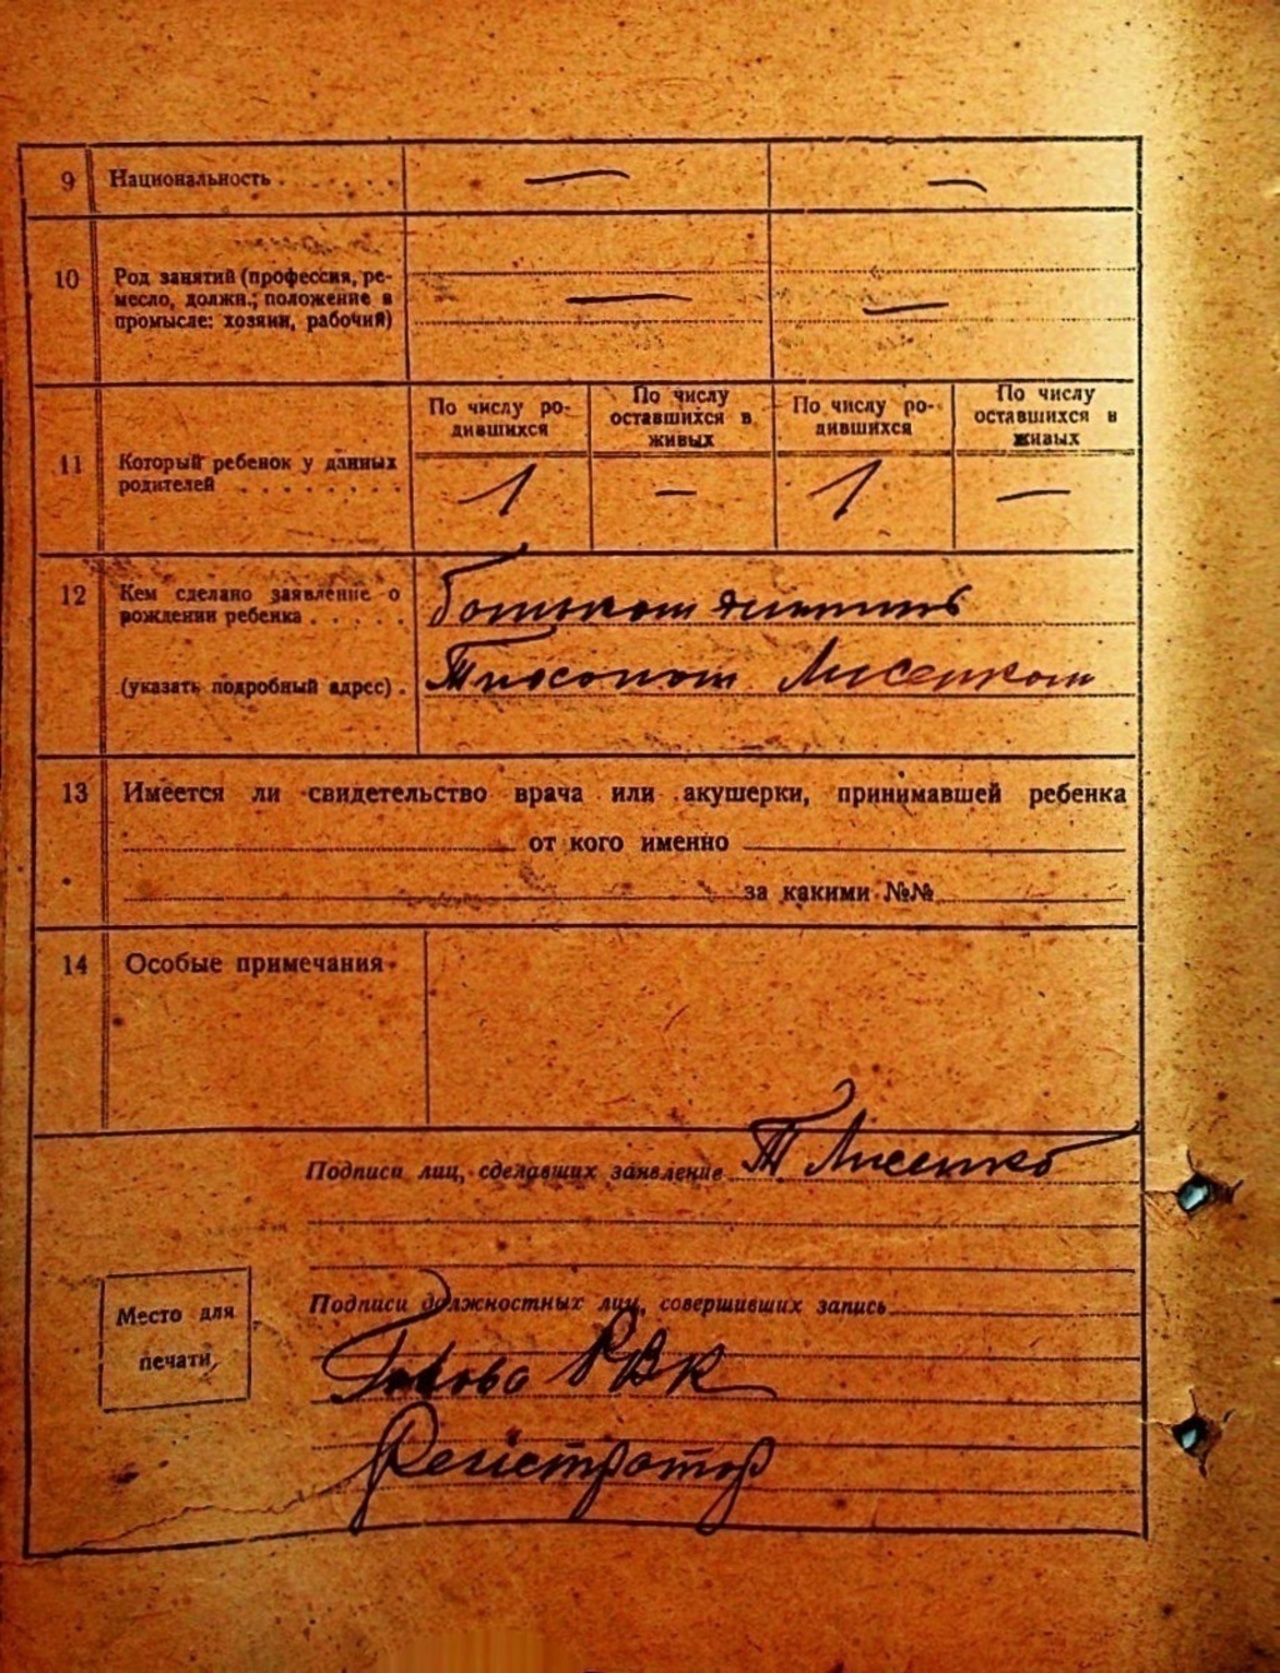 9 Национальность . . . . . . — —
10 Род занятий (профессия, ре-
месло, должн.; положение в
промысле: хозяин, рабочий) — —
По числу ро-
дившихся
По числу
оставшихся в
живых
По числу ро-
дившихся
По числу
оставшихся в
живых
11 Который ребенок у данных
родителей . . . . . . . . 1 — 1 —
12 Кем сделано заявление о
рождении ребенка . . . . . Батьком
(указать подробный адрес) . Лисенком
13 Имеется ли свидетельство врача или акушерки, принимавшей ребенка
от кого именно
за какими №№
14 Особые примечания
Подписи лиц, сделавших заявление Т Лисенко
Подписи должностных лиц, совершивших запись
Место для
печати
Голова РВК
Регістратор